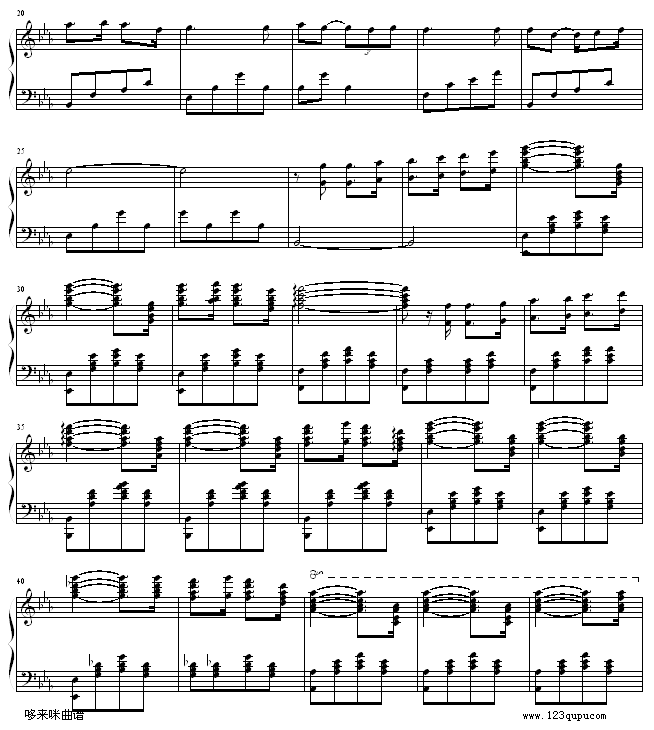 20
25
30
35
40
8va
哆来咪曲谱
www.123qupu.com